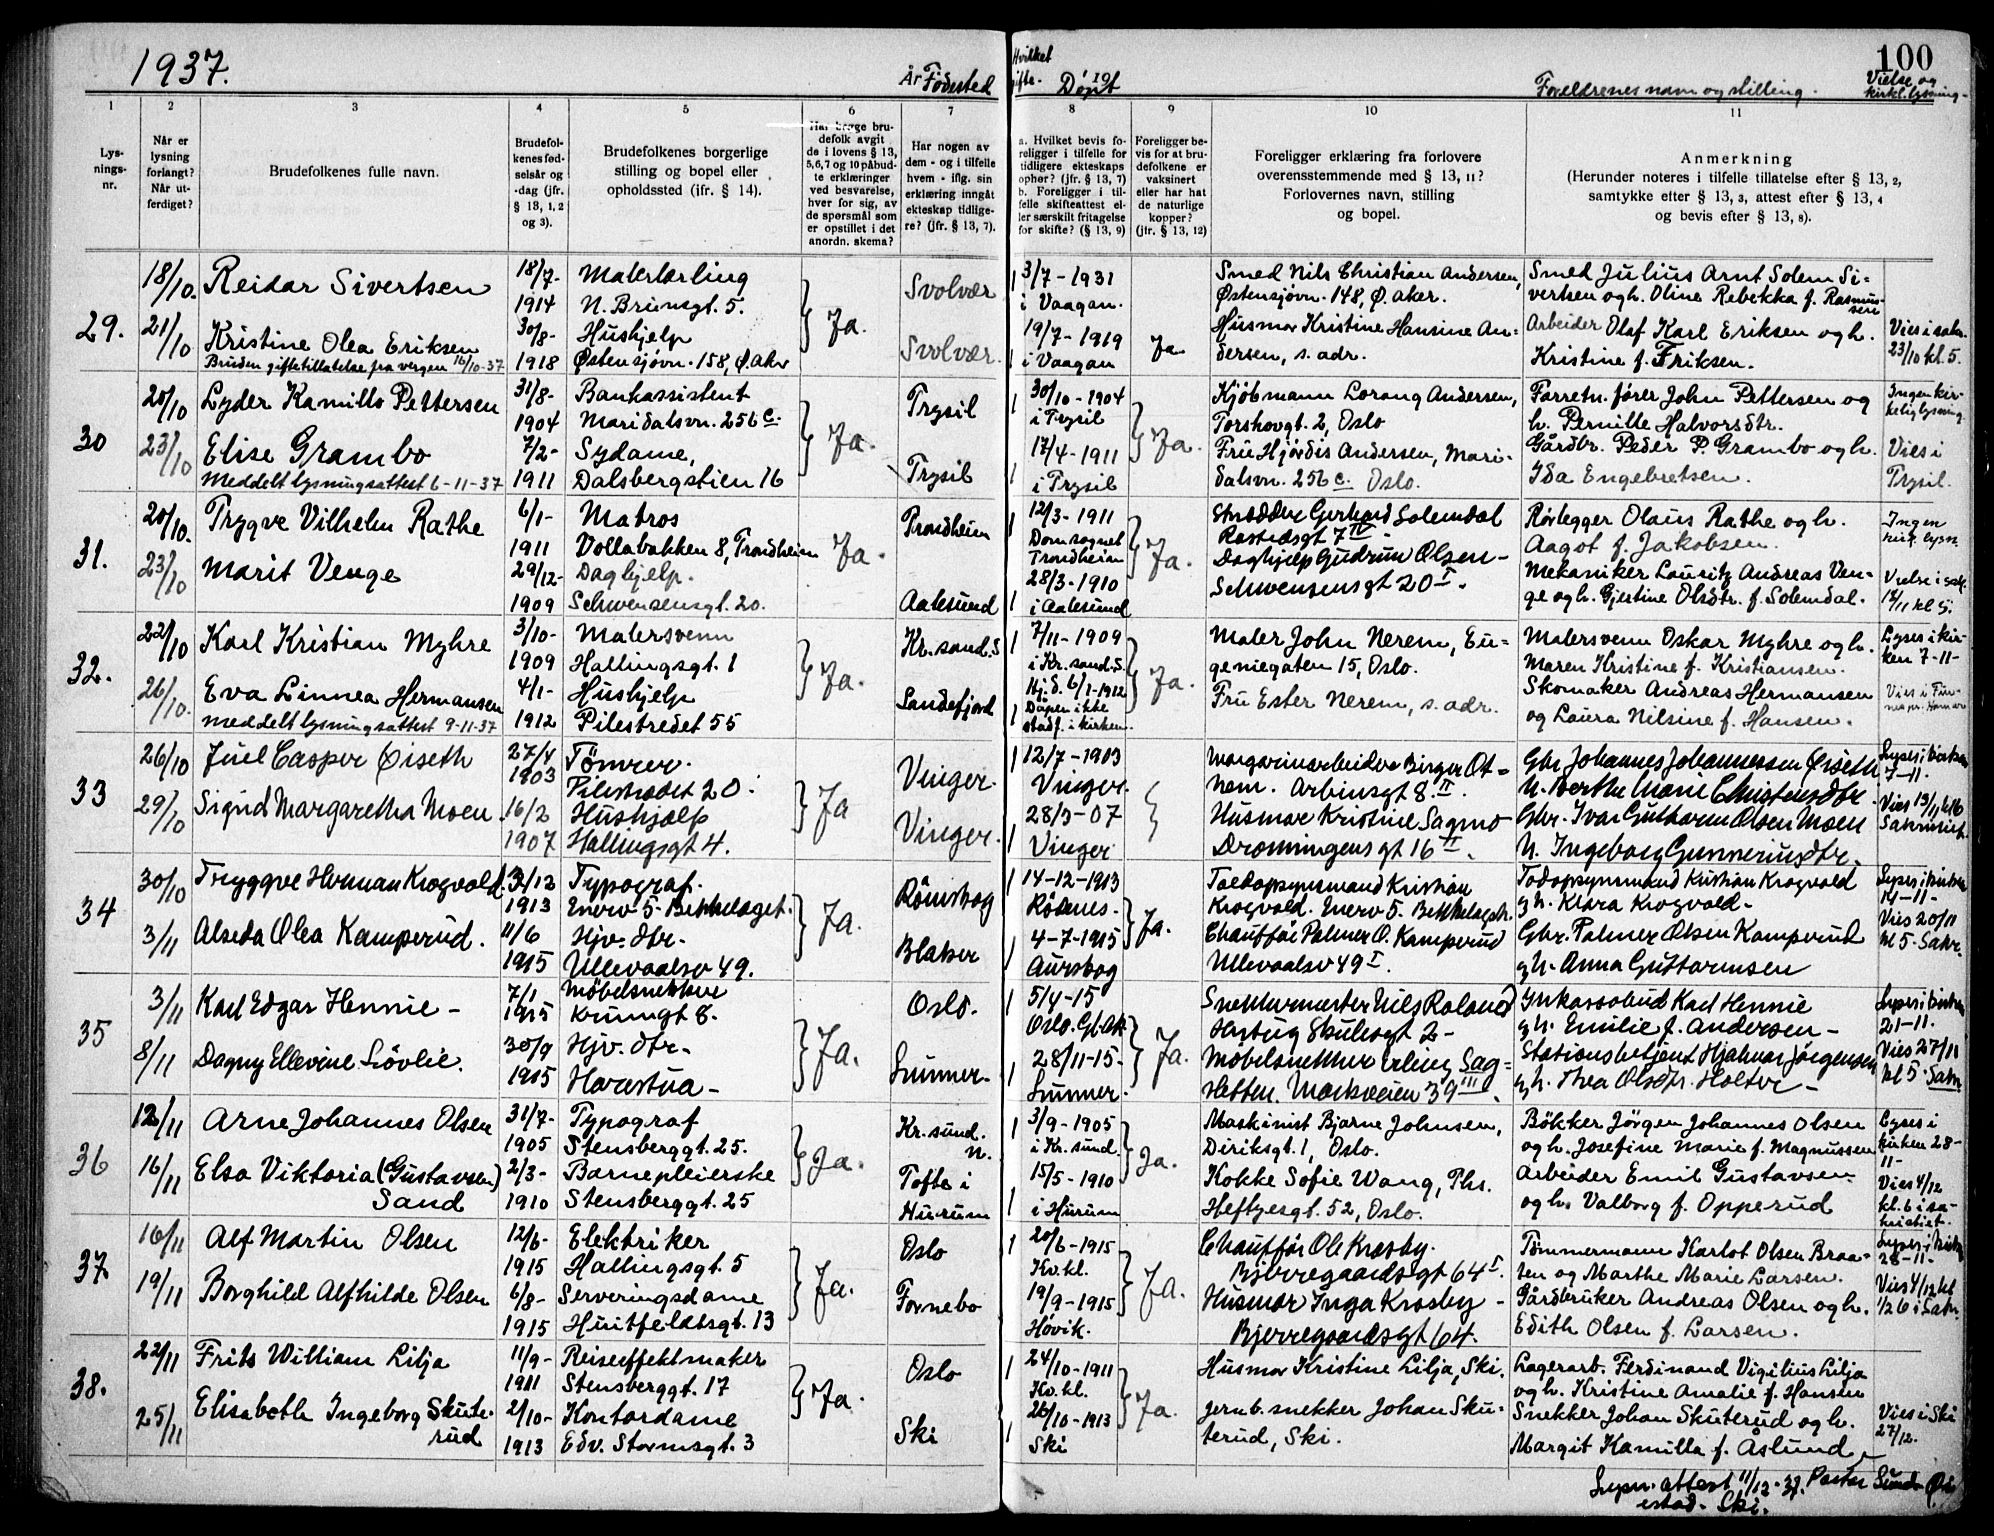 1937.
År 19
Fødested
Hvilket
gifte.
Døpt
Foreldrenes navn og stilling.
100
Vielse og
kirkl. lysning
1 2 3 4 5 6 7 8 9 10 11
Lys-
nings-
nr.
Når er
lysning
forlangt?
Når ut-
ferdiget?
Brudefolkenes fulle navn.
Brudefol-
kenes fød-
selsår og
-dag (jfr.
§ 13, 1, 2
og 3).
Brudefolkenes borgerlige
stilling og bopel eller
opholdssted (ifr. § 14).
Har begge bru-
defolk avgit
de i lovens § 13,
5, 6, 7 og 10 påbud-
te erklæringer
ved besvarelse,
hver for sig, av
de spørsmål som
er opstillet i det
anordn. skema?
Har nogen av
dem - og i tilfelle
hvem - iflg. sin
erklæring inngått
ekteskap tidlige-
re? (jfr. § 13, 7).
a. Hvilket bevis fo-
religger i tilfelle for
tidligere ekteskaps
ophør? (jfr. § 13, 7)
b. Foreligger i til-
felle skifteattest el-
ler særskilt fritagelse
for skifte? (§ 13, 9)
Foreligger be-
vis for at bru-
defolkene er
vaksinert
eller har hat
de naturlige
kopper?
(jfr. § 13, 12)
Foreligger erklæring fra forlovere
overensstemmende med § 13, 11?
Forlovernes navn, stilling
og bopel.
Anmerkning
(Herunder noteres i tilfelle tillatelse efter § 13, 2,
samtykke efter § 13, 3, attest efter § 13, 4
og bevis efter § 13, 8).
29.
18/10. Reidar Sivertsen 18/7- 1914
Malerlærling
N. Brunsgt. 5.
Ja.
Svolvær
1 3/7-1931
i Vaagan.
Smed Nils Christian Andersen,
Østensjøvn. 148, Ø. Aker.
Smed Julius Arnt Solem Si-
vertsen og h. Oline Rebekka f. Rasmus-
sen
21/10 Kristine Olea Eriksen 30/8- 1918
Bruden giftetillatelse fra vergen 16/10-37
Hushjelp
Østensjøvn. 158, Ø. Aker
Svolvær.
19/7-1919
1 i Vaagan
Ja
Husmor Kristine Hansine An-
dersen, s. adr.
Arbeider Olaf Karl Eriksen og h.
Kristine f. Eriksen.
Vies i sakr.
23/10 kl. 5.
30
20/10 Lyder Kamillo Pettersen 31/8- 1904
Bankassistent
Maridalsvn. 256 c.
Ja.
Trysil
1 30/10-1904
i Trysil
Ja.
Kjøbmann Lorang Andersen,
Torshovgt. 2, Oslo
Forretn.fører John Pettersen og
h. Pernille Halvorsdtr.
Ingen kir-
kelig lysning
23/10 Elise Grambo 7/2- 1911
Meddelt lysningsattest 6-11-37
Sydame,
Dalsbergstien 16
Trysil
17/4-1911
1 i Trysil
Fru Hjørdis Andersen, Mari-
dalsvn. 256 c. Oslo.
Gårdbr. Peder P. Grambo og h.
Ida Engebretsen.
Vies i
Trysil.
31.
20/10. Trygve Vilhelm Rathe 6/1- 1911
Matros
Vollabakken 8, Trondheim
Ja.
Trondheim
1 12/3-1911
Domsognet
Trondheim
Ja.
Skredder Gerhard Solemdal
Rostedsgt 7 IV
Rørlegger Olaus Rathe og h.
Aagot f. Jakobsen.
Ingen
kirk. lysn.
23/10 Marit Venge 29/12- 1909
Daghjelp.
Schwensensgt. 20.
Aalesund
28/3-1910
1 i Aalesund
Daghjelp Gudrun Olsen -
Schwensensgt 20 I.
Mekaniker Lauritz Andreas Ven-
ge og h. Gjertine Olsdtr. f. Solemdal.
Vielse i sak.
13/11 kl 5.
32.
22/10 Karl Kristian Myhre 3/10- 1909
Malersvenn
Hallingsgt. 1
Ja.
Kr.sand. S
1 7/11-1909
i Kr.sand. S.
Ja.
Maler John Nerem, Eu-
geniegaten 15, Oslo.
Malersvenn Oskar Myhre og h.
Maren Kristine f. Kristiansen.
Lyses i kir-
ken 7-11-
26/10. Eva Linnea Hermansen 4/1- 1912
meddelt lysningsattest 9-11-37
Hushjelp
Pilestredet 55
Sandefjord
Hj.d. 6/1-1912
1 Dåpen ikke
stadf. i kirken
Fru Ester Nerem, s. adr.
Skomaker Andreas Hermansen
og Laura Nilsine f. Hansen.
33
26/10 Juel Casper Øiseth 27/4 1903
Tømrer.
Pilestrædet 20.
Ja
Vinger.
1 12/7-1903
Vinger.
Margarinarbeider Birger Ot-
nem. Arbinsgt 8. II.
Gbr Johannes Johannessen Øiseth
h. Berthe Marie Christensdtr.
Lyses i kirken
7-11.
29/10 Sigrid Margaretha Moen. 16/2 1907
Hushjælp
Hallingsgt 4.
Vinger.
28/3-07
1 Vinger
Husmor Kristine Sagmo
Dronningensgt 16 II.
Gbr. Ivar Guttorm Olsen Moen
h. Ingeborg Gunneriusdtr.
Vies 13/11 kl 6
Sakristiet.
34
30/10 Tryggve Herman Krogvold. 3/12 1913
Typograf.
Enerv 5. Bekkelaget.
Ja.
Römskog
1 14-12-1913
Rödenes.
Ja.
Toldopsynsmand Kristian
Krogvold. Enerv 5. Bekkelagsh.
Toldopsynsmand Kristian Krogvold
g h. Klara Krogvold-
Lyses i kirken
14-11-
3/11 Alseda Olea Kamperud. 11/6 1915
Hjv. dtr.
Ullevaalsv 49.
Blaker
4-7-1915
1 Aurskog
Chauffør Palmer O. Kamperud
Ullevaalsv 49 I.
Gbr. Palmer Olsen Kamperud
g h. Anna Guttormsen
Vies 20/11
kl 5. Sakr.
35
3/11 Karl Edgar Hennie - 7/1 1915
Møbelsnekker
Krumgt 8.
Ja.
Oslo.
1 5/4-15
Oslo. Gl. Ak.
Ja.
Snekkermester Nils Roland
Hertug Skulesgt 2-
Inkassobud Karl Hennie
g h. Emilie f. Andersen -
Lyses i kirken
21-11.
8/11 Dagny Ellevine Løvlie. 30/9 1915
Hjv. dtr-
Harestua -
Lunner.
28/11-15-
1 Lunner.
Møbelsnekker Erling Sag-
sletten. Markveien 39 III.
Stationsbetjent Hjalmar Jørgensen
g h. Thea Olsdtr. Holter -
Vies 27/11
kl 5. Sakr.
36
12/11 Arne Johannes Olsen 31/7- 1905
Typograf
Stensberggt. 25.
Ja.
Kr.sund.
N.
1 3/9-1905
i Kr.sund
Ja.
Maskinist Bjarne Johnsen,
Diriksgt. 1, Oslo.
Bökker Jörgen Johannes Olsen
og h. Josefine Marie f. Magnussen
Lyses i
kirken 28-
11-
16/11 Elsa Viktoria (Gustavsen) 2/3- 1910
Sand
Barnepleierske
Stensberggt. 25
Tofte i
Hurum
15/5-1910
1 i Hurum
Kokke Sofie Wang, Ths.
Heftyesgt. 52, Oslo.
Arbeider Emil Gustavsen
og h. Valborg f. Opperud
Vies 4/12
kl. 6 i sa-
kristiet.
37.
16/11 Alf Martin Olsen 12/6- 1915
Elektriker
Hallingsgt. 5
Ja.
Oslo
1 20/6-1915
Kv.kl.
Ja.
Chauffør Ole Krosby.
Bjerregaardsgt 64 I.
Tømmermann Karlot Olsen Braa-
ten og Marthe Marie Larsen.
Lyses i kirken
28-11-
19/11 Borghild Alfhilde Olsen 6/8- 1915
Serveringsdame
Huitfeldtsgt. 13
Fornebo
19/9-1915
Høvik.
Husmor Inga Krosby -
Bjerregaardsgt 64.
Gårdbruker Andreas Olsen og h.
Edith Olsen f. Larsen.
Vies 4/12 kl
1/2 6 i Sakr.
38.
22/11 Frits William Lilja 11/9- 1911
Reiseeffektmaker
Stensberggt. 17
Ja.
Oslo
1 24/10-1911
Kv.kl.
Ja.
Husmor Kristine Lilja, Ski.
Lagerarb. Ferdinand Vigilius Lilja
og h. Kristine Amalie f. Hansen
25/11 Elisabeth Ingeborg Skute-
rud 2/10- 1913
Kontordame
Edv. Stormsgt. 3
Ski
26/10-1913
1 Ski
Jernb.snekker Johan Sku-
terud, Ski.
Snekker Johan Skuterud og h.
Margit Kamilla f. Åslund
Vies i Ski
27/12.
Lysn. attest 11/12-37. Pastor Sund
Ski.